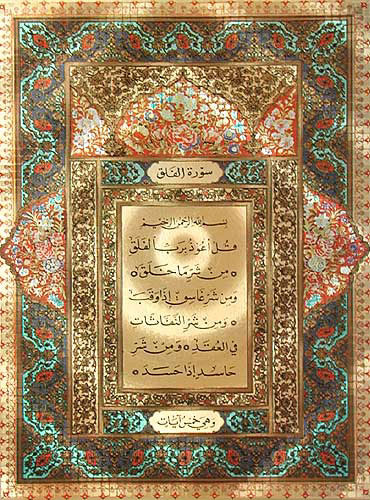 سورة الفلق
بسم الله الرحمن الرحيم
قُلْ أَعُوذُ بِرَبِّ الْفَلَقِ
مِنْ شَرِّ مَا خَلَقَ
وَمِنْ شَرِّ غَاسِقٍ إِذَا وَقَبَ
وَمِنْ شَرِّ النَّفَّاثَاتِ
فِي الْعُقَدِ وَمِنْ شَرِّ
حَاسِدٍ إِذَا حَسَدَ
وهي خمس آيات